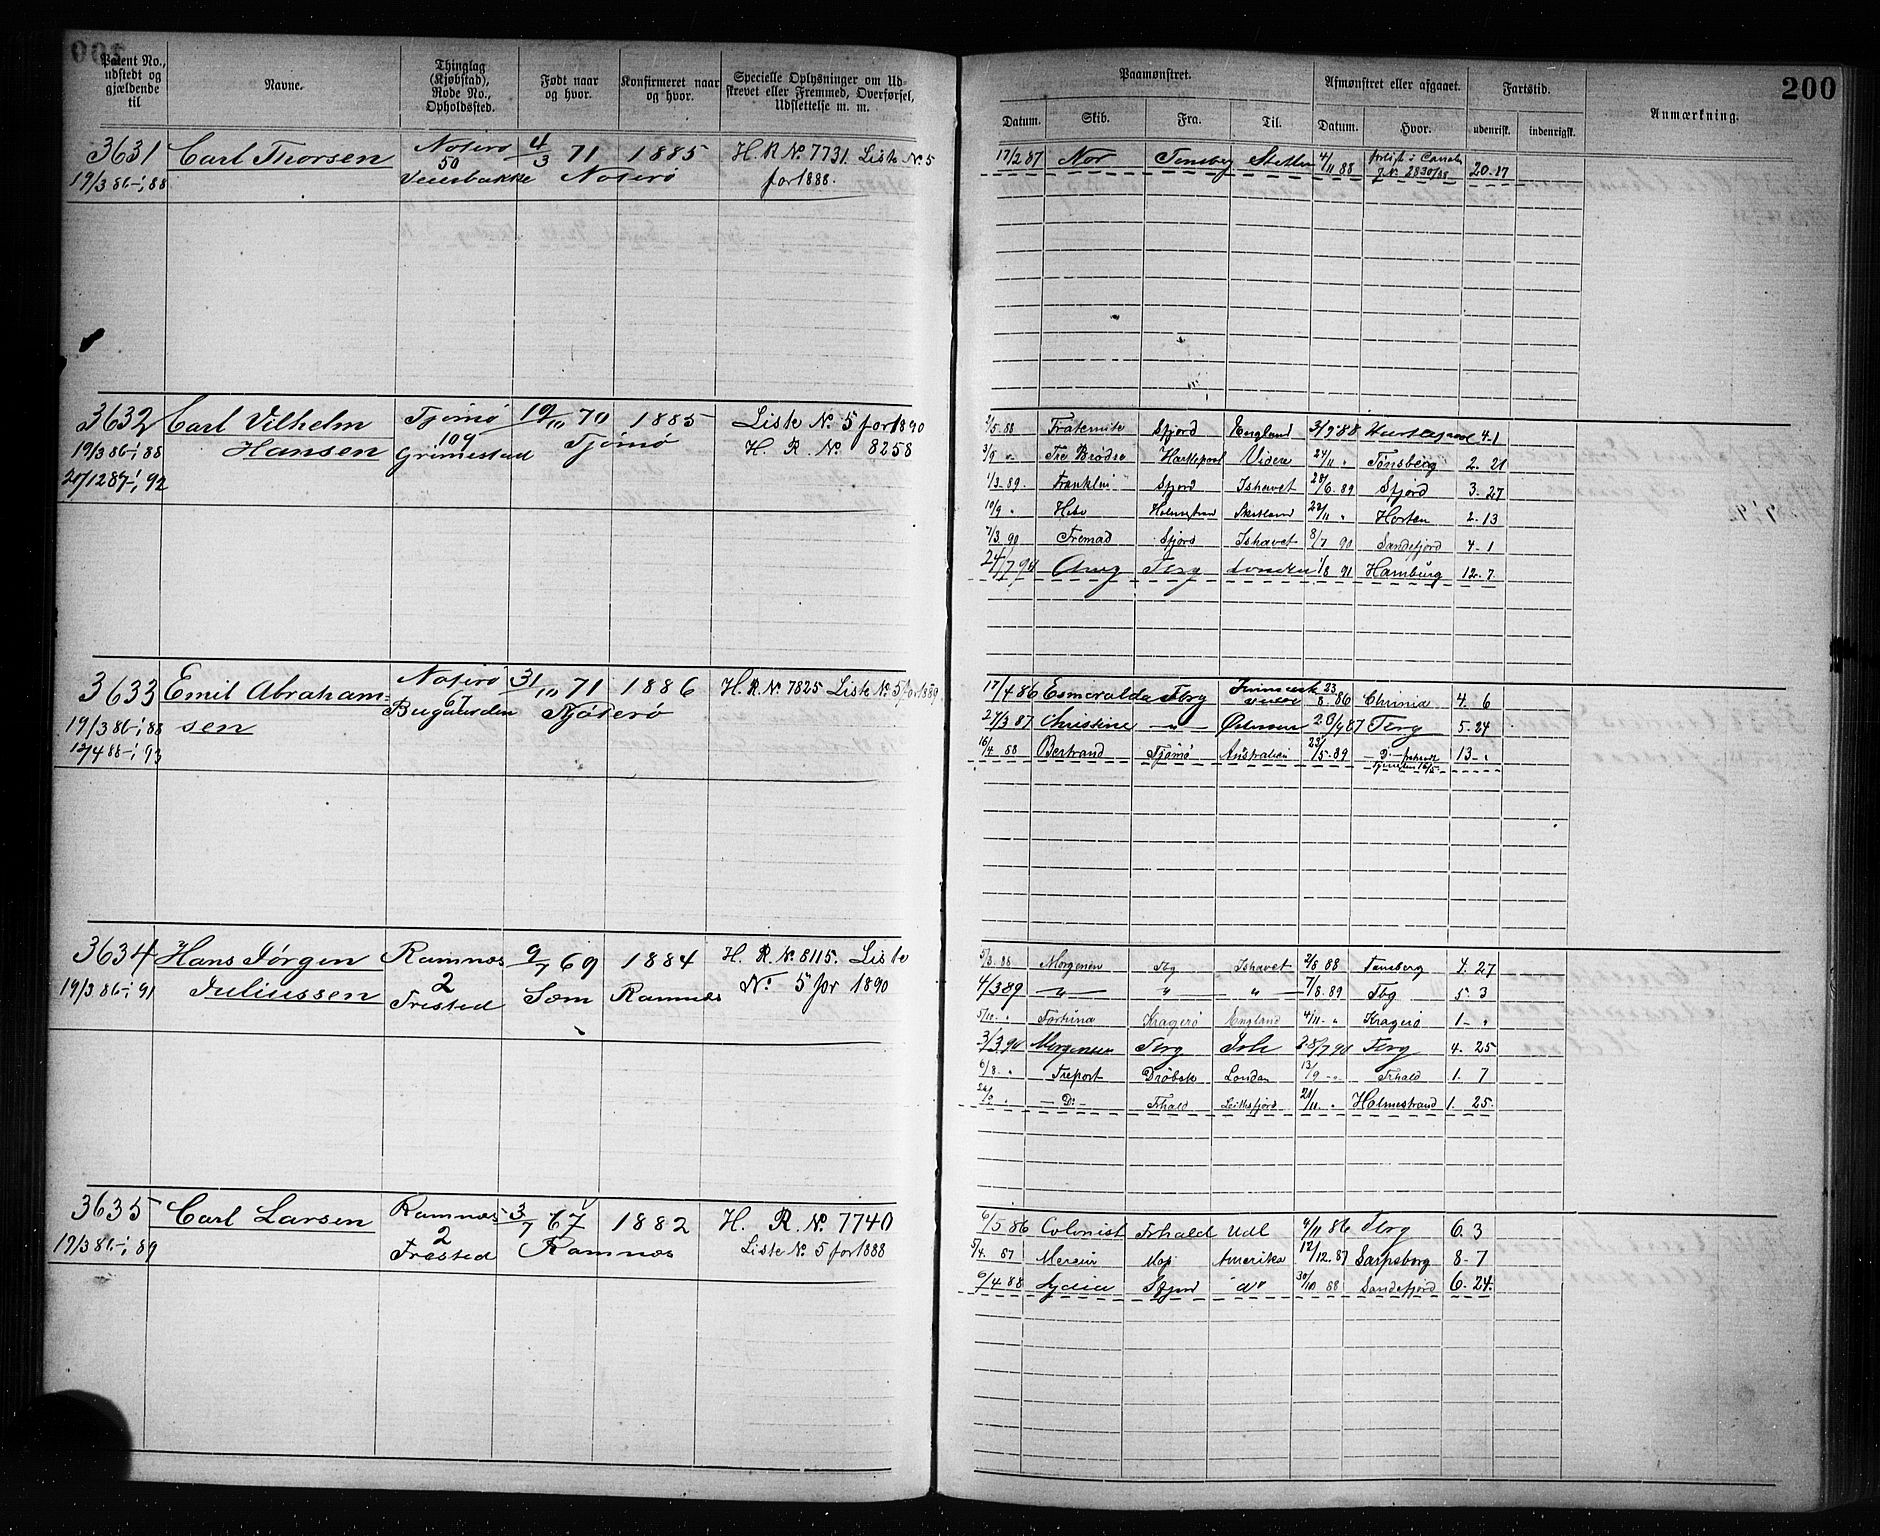 200
Patent No., udstedt og gjældende til
Navne.
Thinglag (Kjøbstad), Rode No., Opholdssted.
Født naar og hvor.
Konfirmeret naar og hvor.
Specielle Oplysninger om Udskrevet eller Fremmed, Overførsel, Udslettelse m. m.
Paamønstret.
Afmønstret eller afgaaet.
Fartstid.
Anmærkning.
Datum. Skib. Fra. Til. Datum. Hvor. udenrisk. indenrigsk.
3631 Carl Thorsen Nøterø 4/3 71 1885 H. R No. 7731. Liste No. 5
50
19/3 86-1/1 88 Nøterø for 1888.
17/2 87 Nor Tønsberg 4/11 88 20. 17
J. No. 2830/88
3632 Carl Vilhelm Tjømø 19/10 70 1885 Liste No. 5 for 1890
109
19/3 86-1/1 88 Hansen Grimestad Tjømø H. R. No. 8258
20/12 87-1/1 92
2/5. 88 Fraternite Sfjord England 3/9 88 4. 1
3/9 " Tre Brødre Hartlepool 24/11 " Tønsberg 2. 21
1/3. 89. Franklin Sfjord Ishavet 28/6. 89 Sfjord 3. 27
10/9 " Hebe Holmestrand 22/11 " Horten 2. 13
7/3 90 Fremad Sfjord Ishavet 8/7 90 Sandefjord 4. 1
24/7 90 Tbrg London 1/8 91 Hamburg 12. 7
3633 Emil Abraham= Nøterø 31/10 71 1886 H. R. No. 7825 Liste No. 5 for 1889
67
19/3 86-1/1 88 sen Bugaarden Njøterø
12/4 88-1/1 93
17/4 86 Esmeralda Tbrg 23/8. 86 Chrinia 4. 6
27/3 87 Christine — " — 20/9 87 Tbrg 5. 24
16/4 88 Bertrand Tjømø Australien 28/5. 89 13 - "
3634 Hans Jørgen Ramnæs 9/7 69 1884 H. R. No. 8115. Liste
2
19/3 86-1/1 91 Juliussen Frested Sem Ramnæs No. 5 for 1890
5/3. 88 Morgenen Tbg Ishavet 2/8 88 Tønsberg 4. 27
4/3 89 — " — " — " — 7/8. 89 Tbg 5. 3
5/10. " Fortuna Kragerø England 4/11. " Kragerø 1. "
3/3 90 Morgenen Tbrg 28/7 90 Tbrg 4. 25
6/8. " Freport Drøbak London 13/9 " Frhald 1. 7
— Do — Frhald Leithsfjord 28/11. " Holmestrand 1. 25.
3635 Carl Larsen Ramnæs 3/7 67 1882 H. R. No. 7740
2
19/3 86-1/1 89 Frested Ramnæs Liste No. 5 for 1888
6/5 86 Colonist Frhald Udl 9/11 86 Tbrg 6. 3
5/4. 87 Mercur Moss Amerika 12/12. 87 Sarpsborg 8. 7
6/4. 88 Lydia Sfjord do 30/10 88 Sandefjord 6. 24.